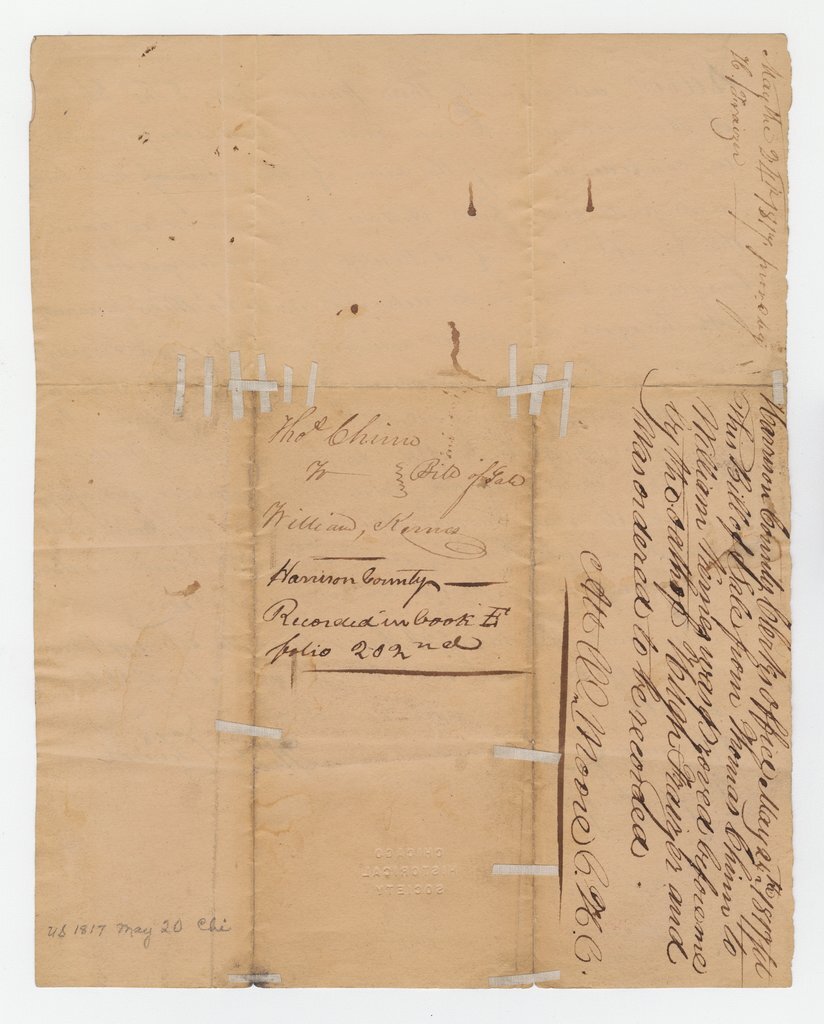 May the 24th 1817 proved by
H. Frazer
Harrison County Clerks office May 24th 1817 sct
This Bill of Sale from Thomas Chinn to
William Kerns was proved before me
by the oath of Frazer and
Was ordered to be recorded.
Att W. Moore C. H. C.
Thos. Chinn
To } Bill of Sale
William, Kerns
Harrison County
Recorded in book E
folio 202nd
CHICAGO
HISTORICAL
SOCIETY
US 1817 May 20 Chi